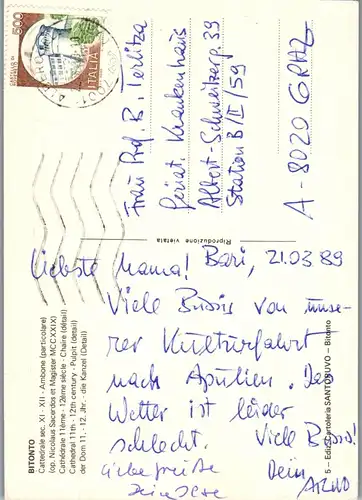 BITONTO
Cattedrale sec. XI - XII - Ambone (particolare)
(op. Nicolaus Sacerdos et Magister MCCXXIX)
Cathédrale 11ème - 12ème siècle - Chaire (détail)
Cathedral 11th - 12th century - Pulpit (detail)
der Dom 11. - 12. Jhr. - die Kanzel (Detail)
Liebste Mama! Bari, 21.03.89
Viele Bussis von unse-
rer Kulturfahrt
nach Apulien. Das
Wetter ist leider
schlecht. Viele Bussis!
Dein
ARNO
Liebe Grüße
Deine
Riproduzione vietata
500
ITALIA
Frau Prof. B. Terlitza
Geriat. Krankenhaus
Albert-Schweitzerg. 39
Station B/II/59
A-8020 GRAZ
5 - Ediz. Cartoleria SANTORUVO - Bitonto